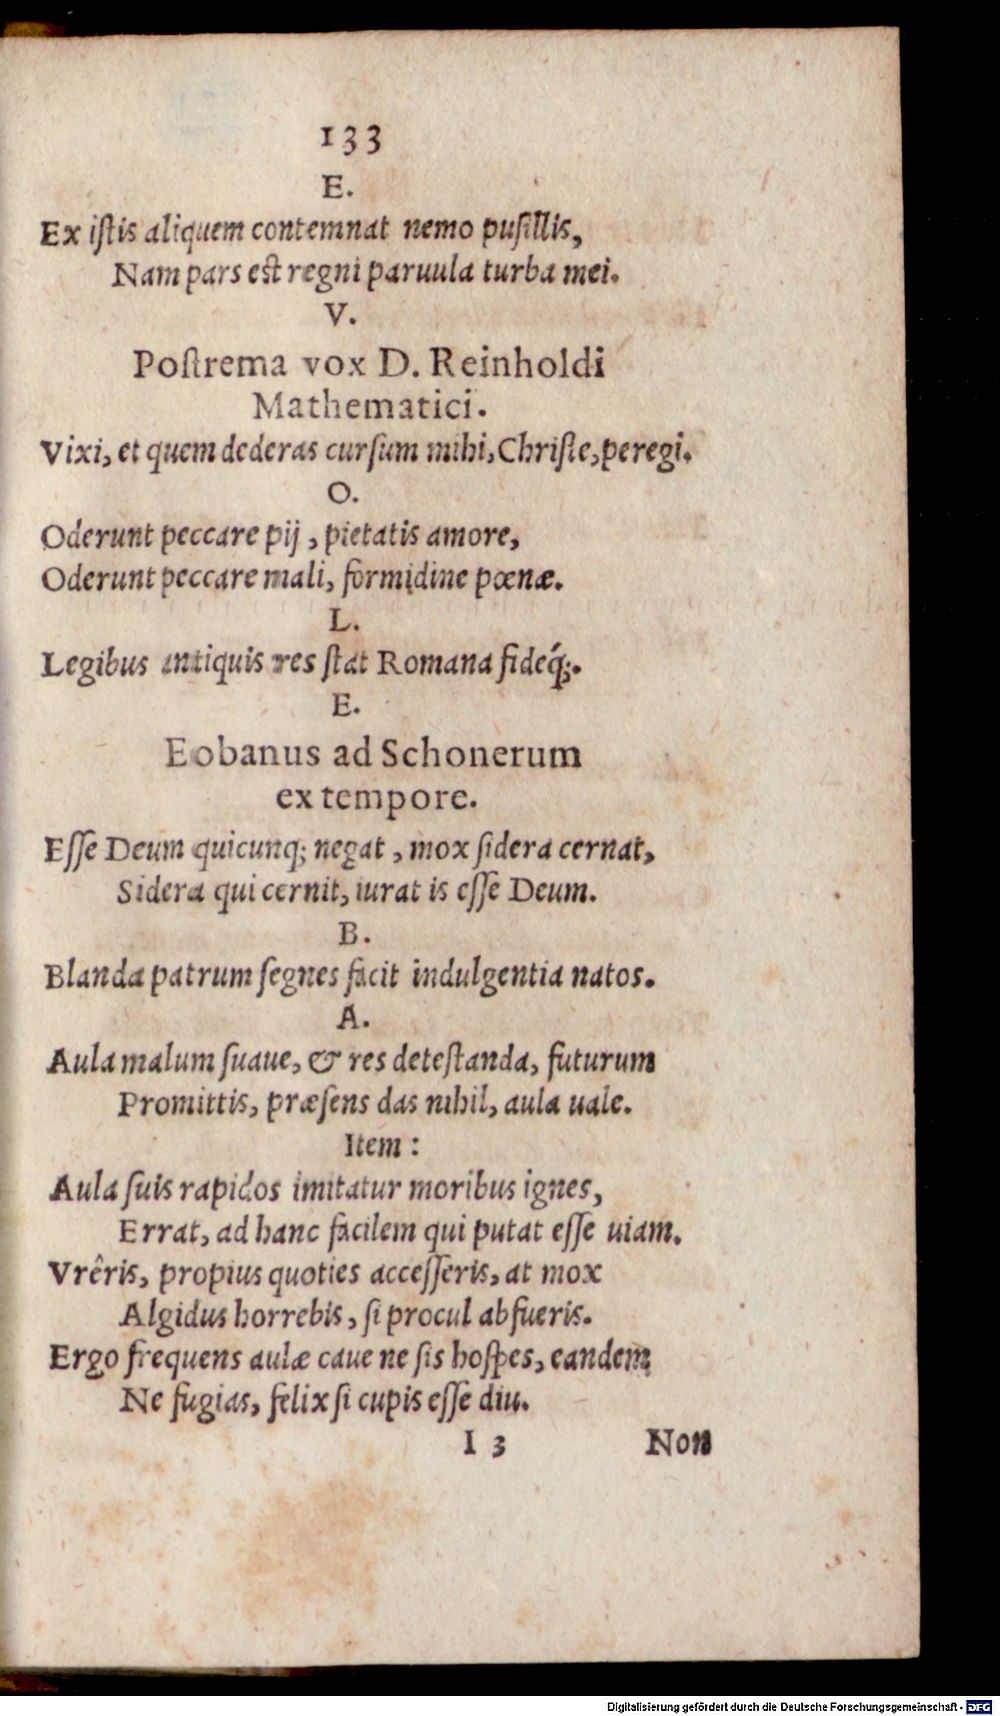 133
E.
Ex iſtis aliquem contemnat nemo puſillis,
Nam pars est regni paruula turba mei.
V.
Poſtrema vox D. Reinholdi
Mathematici.
Vixi, et quem dederas curſum mihi, Chriſte, peregi.
O.
Oderunt peccare pij, pietatis amore,
Oderunt peccare mali, formidine pœnæ.
L.
Legibus antiquis res ſtat Romana fideq́;.
E.
Eobanus ad Schonerum
ex tempore.
Eſſe Deum quicunq; negat, mox ſidera cernat,
Sidera qui cernit, iurat is eſſe Deum.
B.
Blanda patrum ſegnes facit indulgentia natos.
A.
Aula malum ſuaue, & res deteſtanda, futurum
Promittis, præſens das nihil, aula uale.
Item:
Aula ſuis rapidos imitatur moribus ignes,
Errat, ad hanc facilem qui putat eſſe uiam.
Vrêris, propius quoties acceſſeris, at mox
Algidus horrebis, ſi procul abfueris.
Ergo frequens aulæ caue ne ſis hoſpes, eandem
Ne fugias, felix ſi cupis eſſe diu.
I 3 Non
Digitalisierung gefördert durch die Deutsche Forschungsgemeinschaft - DFG